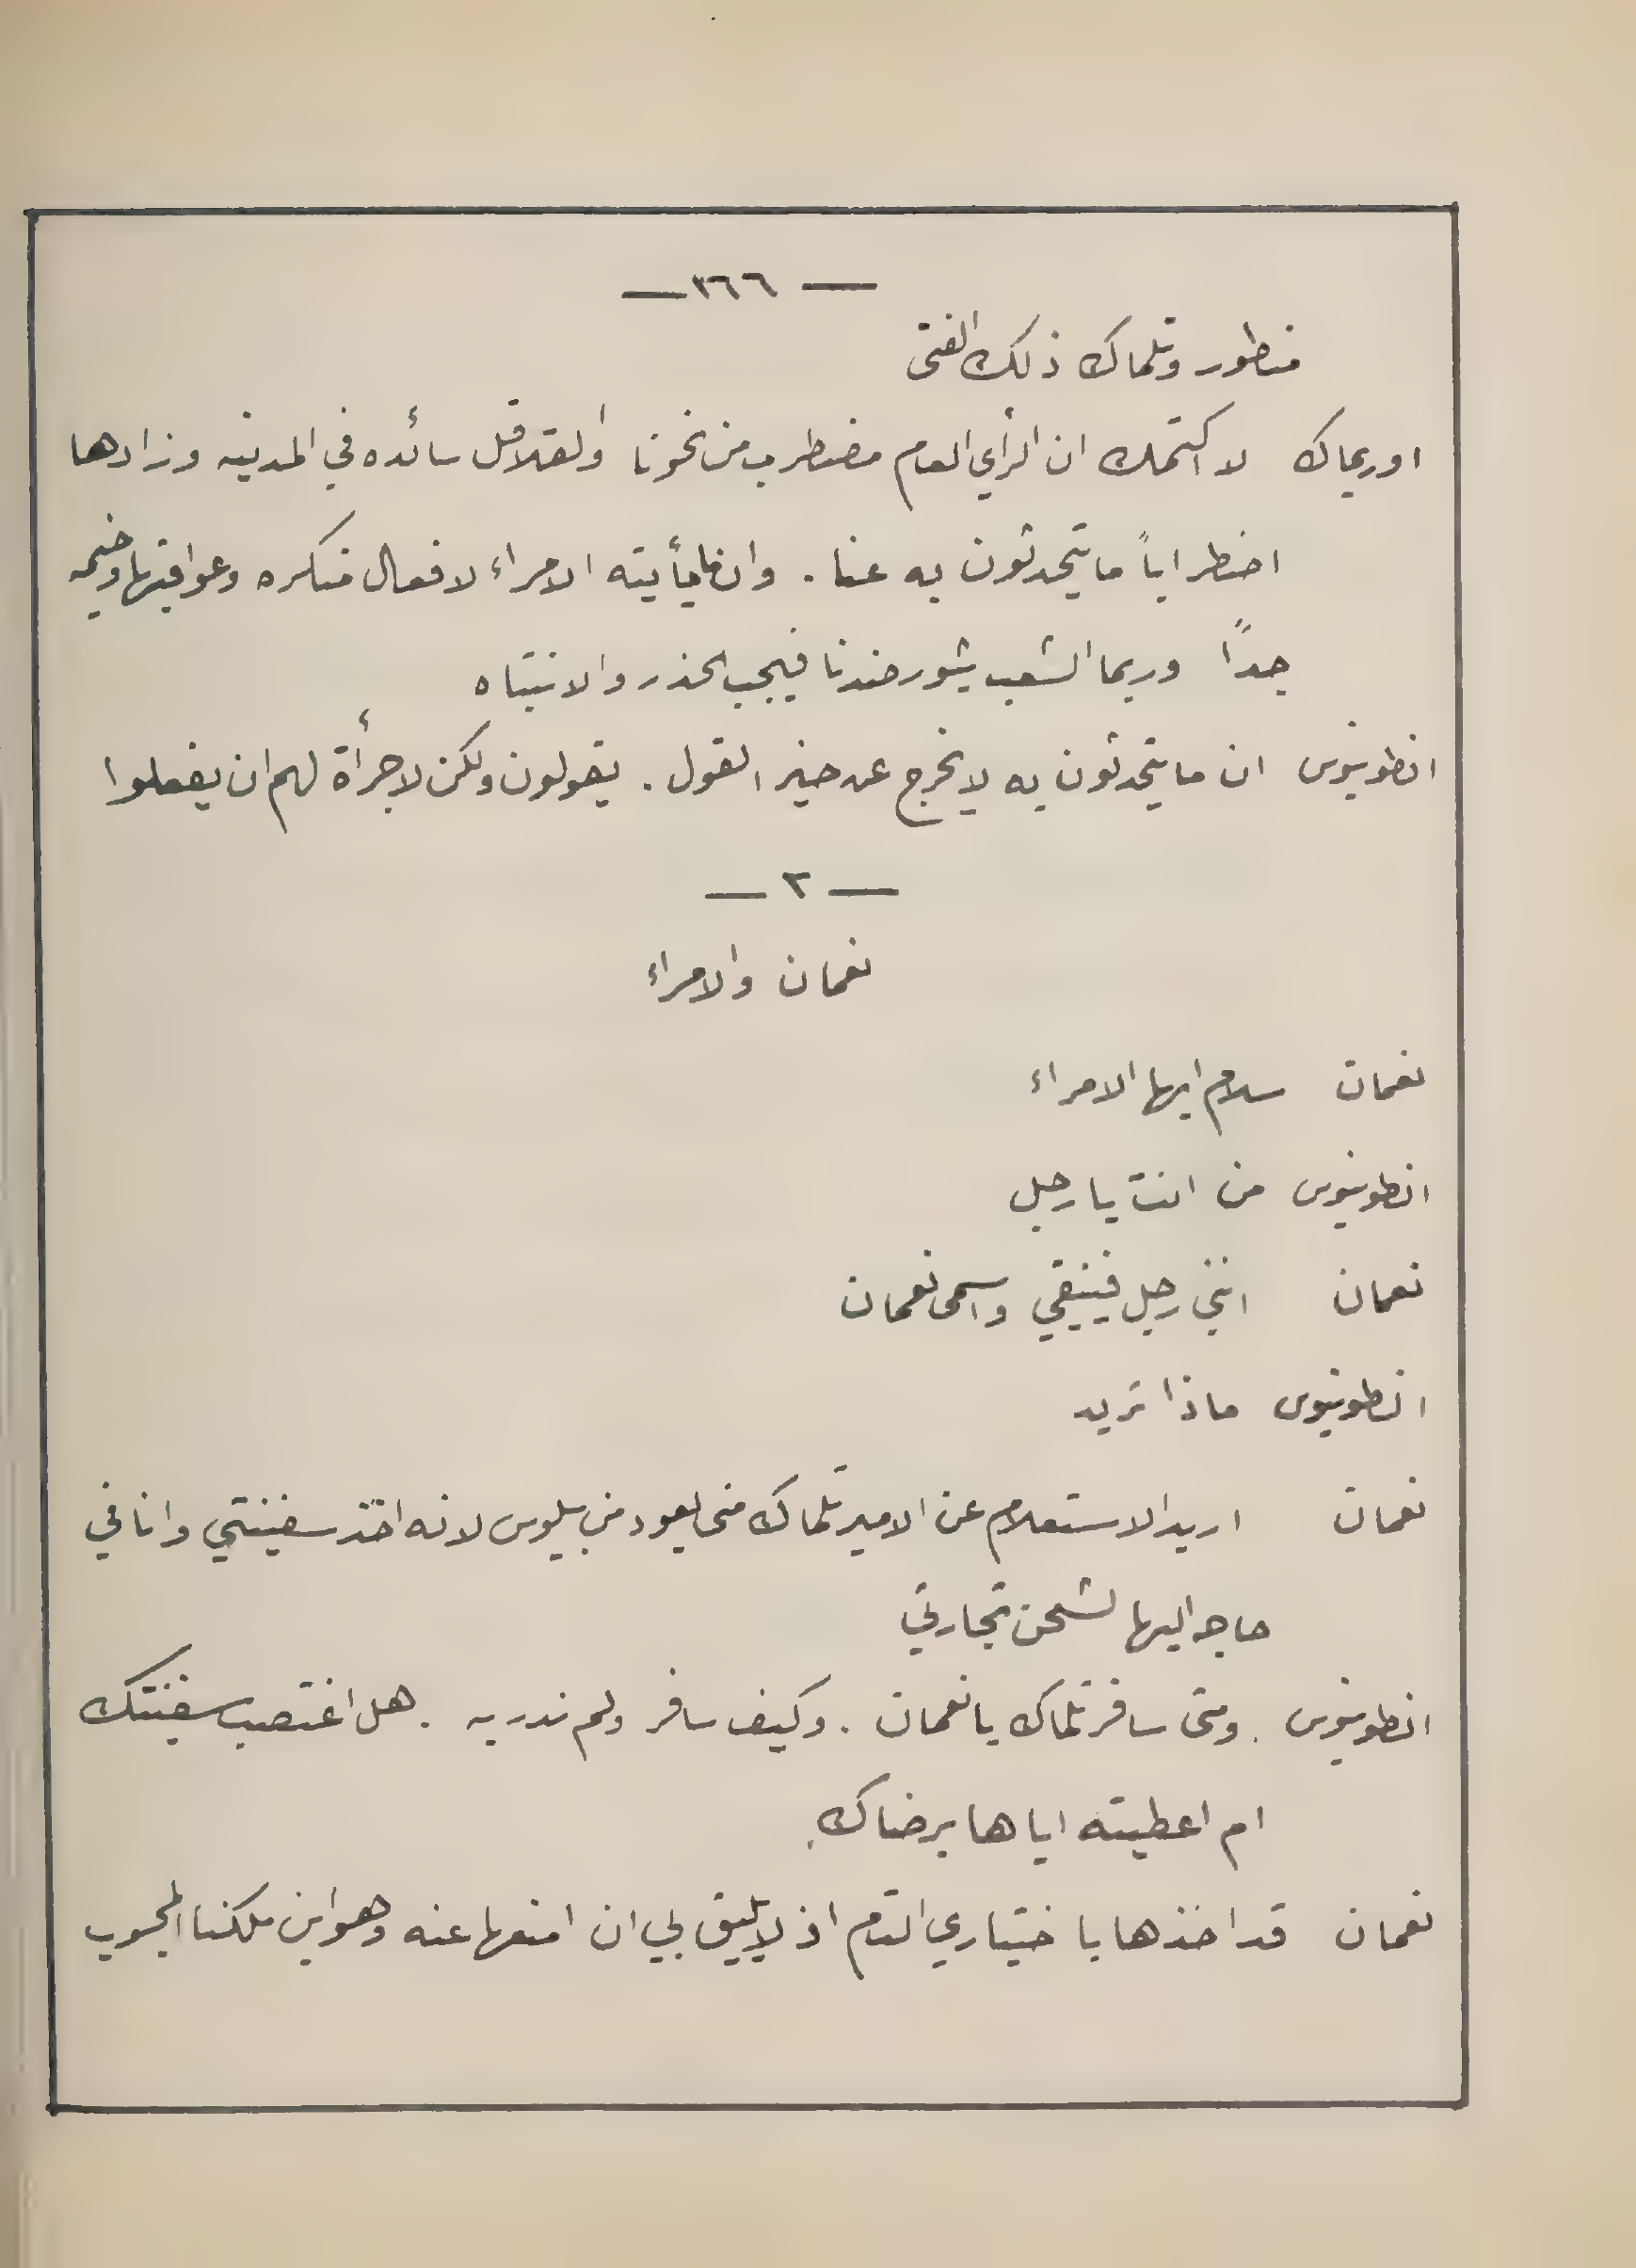 — ٣٦٦ —
منطور وتلماك ذلك الفتى
اوريماك لا اكتمك ان الرأي العام مضطرب من نحونا والقلاقل سائده في المدينه وزادها
اضطراباً ما يتحدثون به عنا . وان ما يأتيه الامراء لافعال منكره وعواقبها وخيمه
جداً وربما الشعب يثور ضدنا فيجب الحذر والانتباه
انطونيوس ان ما يتحدثون به لا يخرج عن حيز القول . يقولون ولكن لا جرأة لهم ان يفعلوا
— ٢ —
نعمان والامراء
نعمان سلام ايها الامراء
انطونيوس من انت يا رجل
نعمان انني رجل فينيقي واسمى نعمان
انطونيوس ماذا تريد
نعمان اريد الاستعلام عن الامير تلماك متى يعود من بيلوس لانه اخذ سفينتي وانا في
حاجه اليها لشحن تجارتي
انطونيوس . ومتى سافر تلماك يا نعمان . وكيف سافر ولم ندر به . هل اغتصب سفينتك
ام اعطيته اياها برضاك .
نعمان قد اخذها باختياري التام اذ لا يليق بي ان امنعها عنه وهو ابن ملكنا المحبوب